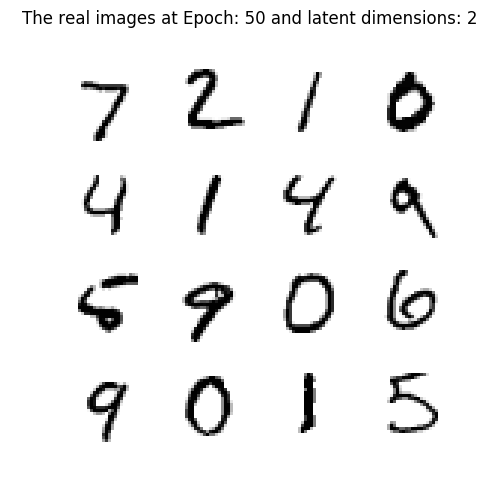 The real images at Epoch: 50 and latent dimensions: 2
7 2 1 0
4 1 4 9
5 9 0 6
9 0 1 5